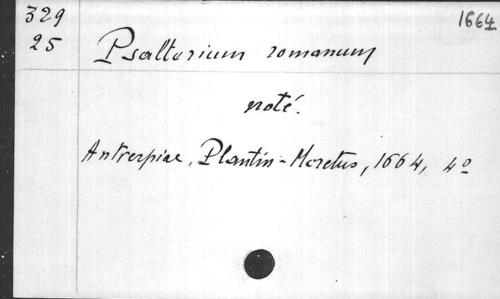 329
25
1664
Psalterium romanum
noté.
Antverpiae, Plantin-Moretus, 1664, 4º